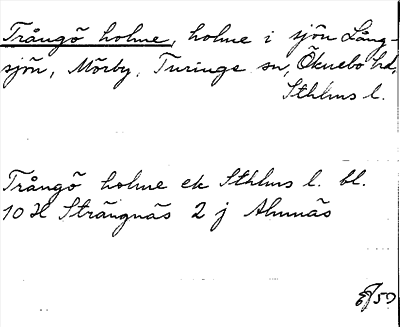 Trångö holme, holme i sjön Lång-
sjön, Mörby, Turinge sn, Öknebo hd,
Sthlms l.
Trångö holme ek Sthlms l. bl.
10 H Strängnäs 2 j Almnäs